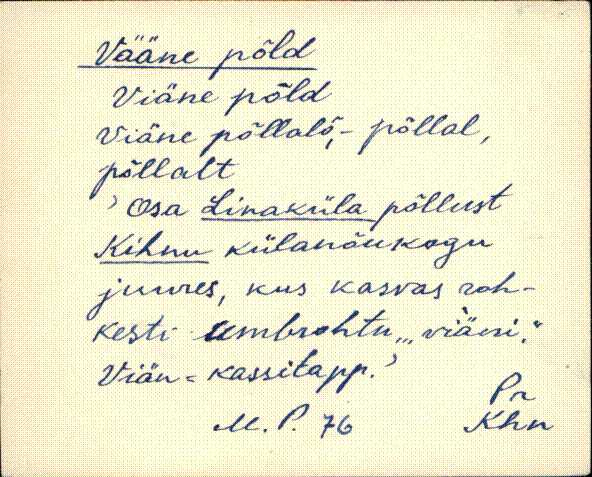 Vääne põld
Viäne põld
Viäne põllalõ, - põllal,
põllalt
' Osa Linaküla põllust
Kihnu külanõukogu
juures, kus kasvas roh-
kesti umbrohtu „viäni“.
Viän = kassitapp.'
Pr
M. P. 76 Khn